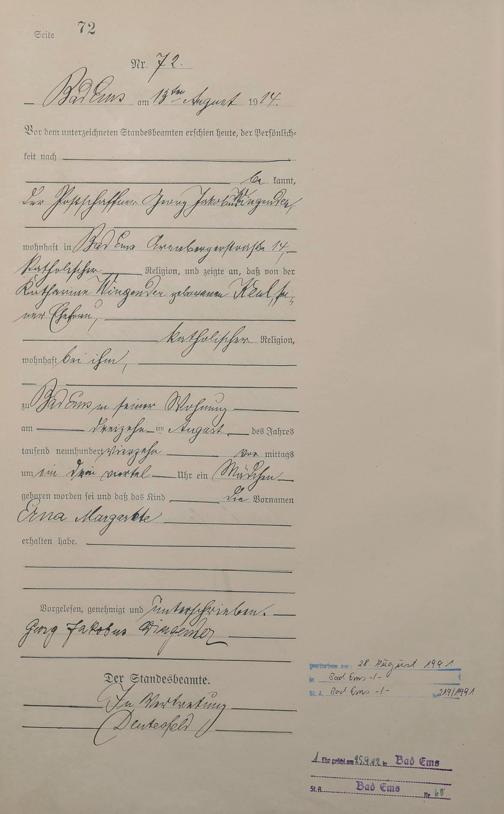 Seite 72
Nr. 72.
Bad Ems am 13ten August 1914.
Vor dem unterzeichneten Standesbeamten erschien heute, der Persönlich-
keit nach
be kannt,
der Postschaffner Georg Jakobus Wingender,
wohnhaft in Bad Ems Arenbergerstraße 14,
katholischer Religion, und zeigte an, daß von der
Katharina Wingender geborenen
ner Ehefrau,
katholischer Religion,
wohnhaft bei ihm,
zu Bad Ems in seiner Wohnung
am dreizehn im August des Jahres
tausend neunhundert vierzehn vor mittags
um ein drei viertel Uhr ein Mädchen
geboren worden sei und daß das Kind die Vornamen
Erna Margarete
erhalten habe.
Vorgelesen, genehmigt und unterschrieben.
Georg Jakobus Wingender
Der Standesbeamte.
In Vertretung
gestorben am: 28. August 1991
in Bad Ems -/-
St. A. Bad Ems -/- 219/1991
1 Ehe geschl. am in Bad Ems
St. A. Bad Ems Nr. 68